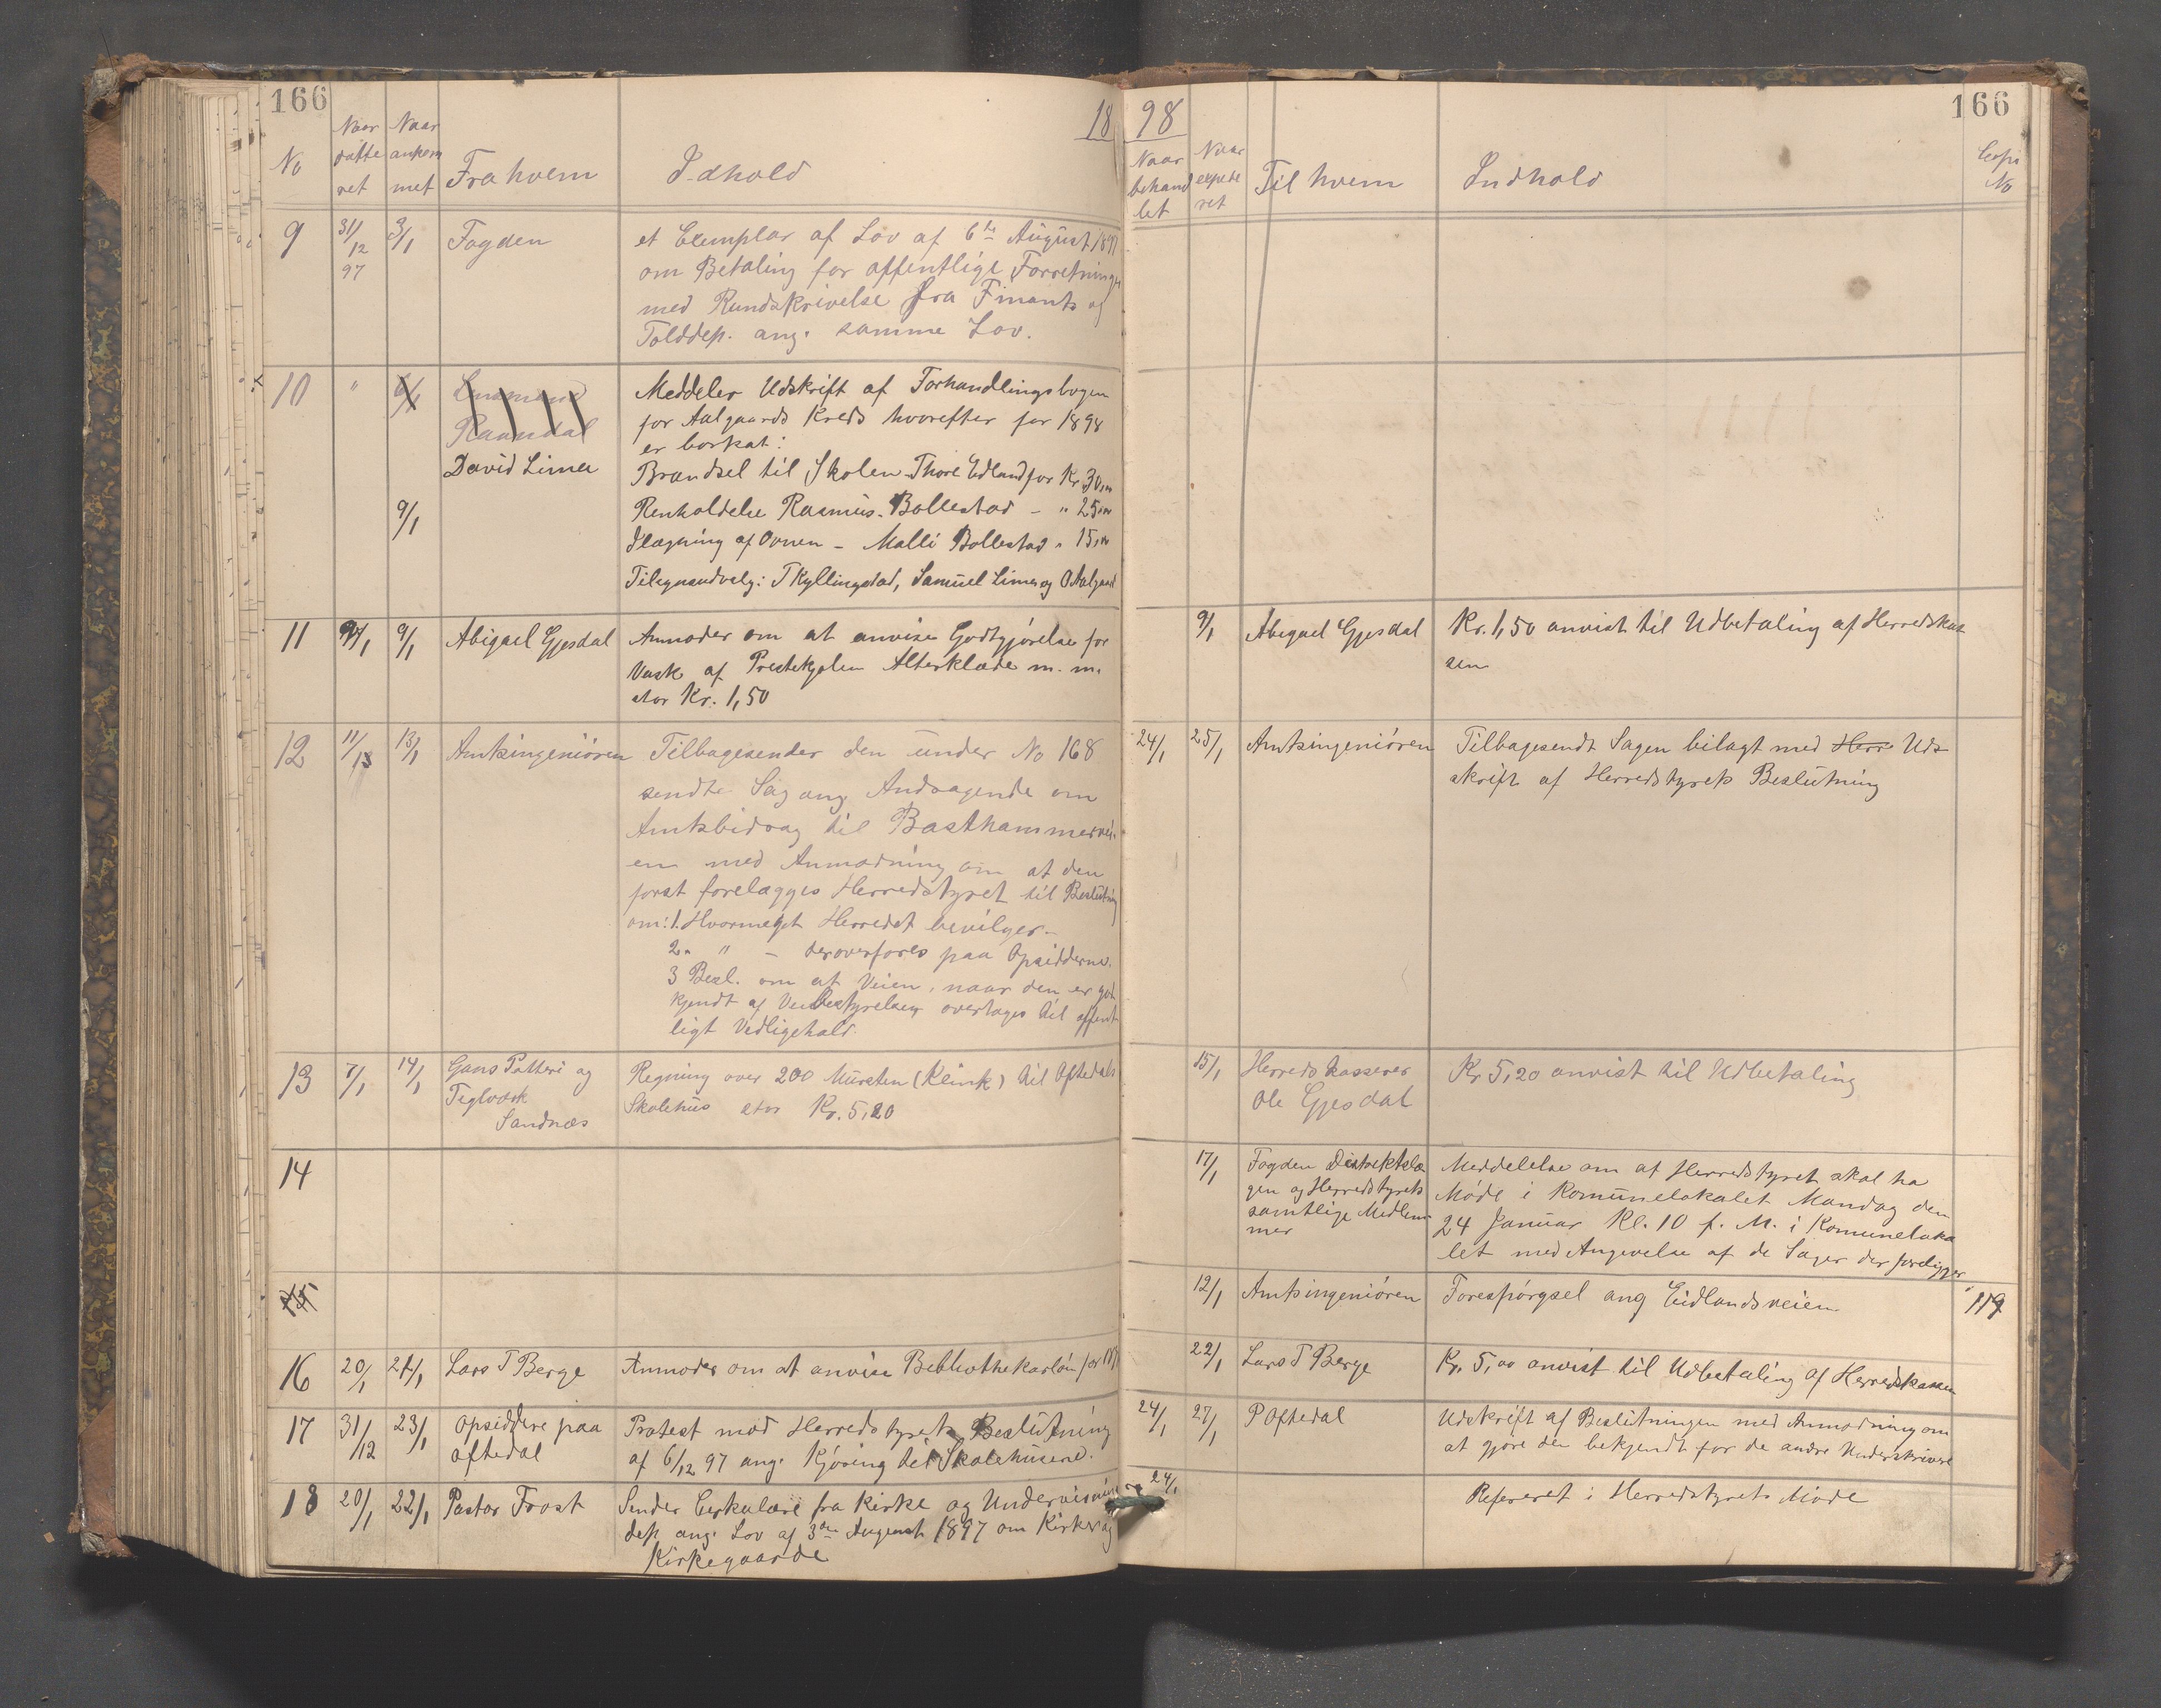 166
18
No
Naar datteret
Naar ankommet
Fra hvem
Indhold
9
31/12 97
3/1
Fogden
et Exemplar af Lov af 6te August 1897
om Betaling for offentlige Forretninger
med Rundskrivelse fra Finants og
Tolddep. ang. samme Lov.
10
"
David Limea
9/1
Meddeler Udskrift af Forhandlingsbogen
for Aalgaards Kreds hvorefter for 1898
er borkat:
Brændsel til Skolen Thore Edland for Kr 30,00
Renholdelse Rasmus Bollestad – " 25,00
Ilægning af Ovnen – Malli Bollestad " 15,00
Tilsynsudvalg: T Kyllingstad, Samuel Limea og O Aalgaard
11
9/1
Abigael Gjesdal
Anmoder om at anvise Godtgjørelse for
Vask af Prestekjolen Alterklæde m. m.
stor Kr. 1,50
12
11/1
13/1
Amtsingeniören
Tilbagesender den under No 168
sendte Sag ang. Andragende om
Amtsbidrag til Basthammervei-
en med Anmodning om at den
først forelægges Herredstyret til Beslutning
om: 1. Hvormeget Herredet bevilger –
2. " – deroverføres paa Opsidderne.
3 Besl. om at Veien, naar den er god
kjendt af Veibestyrelsen overtages til offent
ligt Vedligehold.
13
7/1
14/1
Gans Potteri og
Teglværk
Sandnæs
Regning over 200 Mursten (Klink) til Oftedals
Skolehus stor Kr. 5,20
14
15
16
20/1
21/1
Lars T Berge
Anmoder om at anvise Bibliothekarløn for 1897
17
31/12
23/1
Opsiddere paa
Oftedal
Protest mod Herredstyrets Beslutning
af 6/12 97 ang. Kjøring til Skolehusene.
18
20/1
22/1
Pastor Frost
Sender Cirkulære fra Kirke og Undervisnings
dep. ang. Lov af 3die August 1897 om Kirker og
Kirkegaarde
98
166
Naar behandlet
Naar expederet
Til hvem
Indhold
Copi No
9/1
Abigael Gjesdal
Kr. 1,50 anvist til Udbetaling af Herredskas
sen
24/1
25/1
Amtsingeniören
Tilbagesendt Sagen bilagt med Herr Ud-
skrift af Herredstyrets Beslutning
15/1
Herredskasserer
Ole Gjesdal
Kr 5,20 anvist til Udbetaling
17/1
Fogden Distriktslæ
gen og Herredstyrets
samtlige Medlem
mer
Meddelelse om at Herredstyret skal ha
Møde i Komunelokalet Mandag den
24 Januar Kl. 10 f. M. i Komuneloka
let med Angivelse af de Sager der foreligger
12/1
Amtsingeniören
Forespørgsel ang Eidlandsveien
119
22/1
Lars T Berge
Kr. 5,00 anvist til Udbetaling af Herredskassen
24/1
27/1
P Oftedal
Udskrift af Beslutningen med Anmodning om
at gjøre den bekjendt for de andre Underskrivere
24/1
Refereret i Herredstyrets Møde